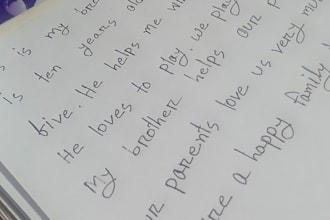 s is my bro
is ten years old
five. He helps me wi
He loves to play. we play
My brother helps our p
ur parents love us very mu
re a happy family